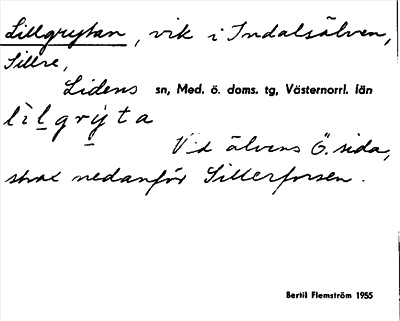 Lillgrytan, vik i Indalsälven,
Sillre,
Lidens sn, Med. ö. doms. tg, Västernorrl. län
lìlgrýta
Vid älvens Ö. sida,
strax nedanför Sillerforsen.
Bertil Flemström 1955